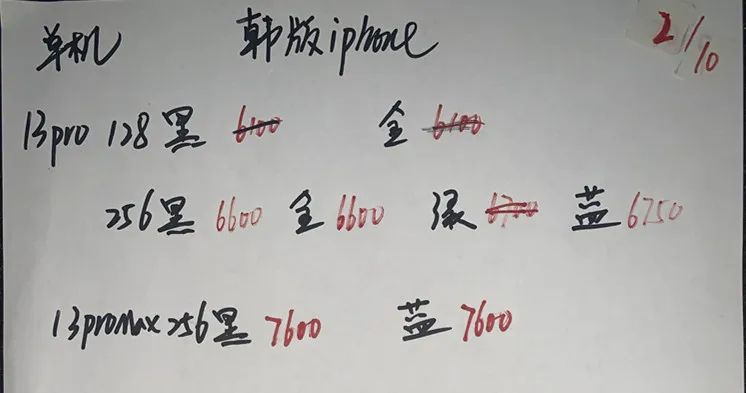 单机 韩版iphone 2/10
13pro 128黑 6100 金 6100
256黑 6600 金 6600 绿 6700 蓝 6750
13promax 256黑 7600 蓝 7600